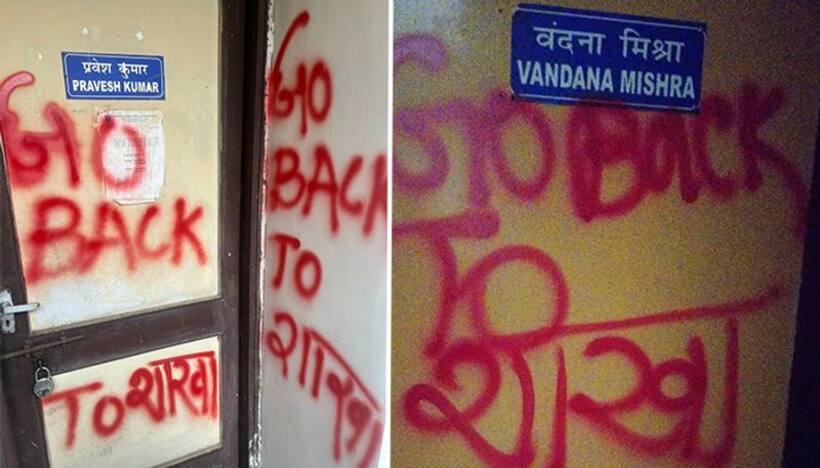 प्रवेश कुमार
PRAVESH KUMAR
GO
BACK
TO शाखा
GO
BACK
TO
शाखा
वंदना मिश्रा
VANDANA MISHRA
GO BACK
TO
शाखा